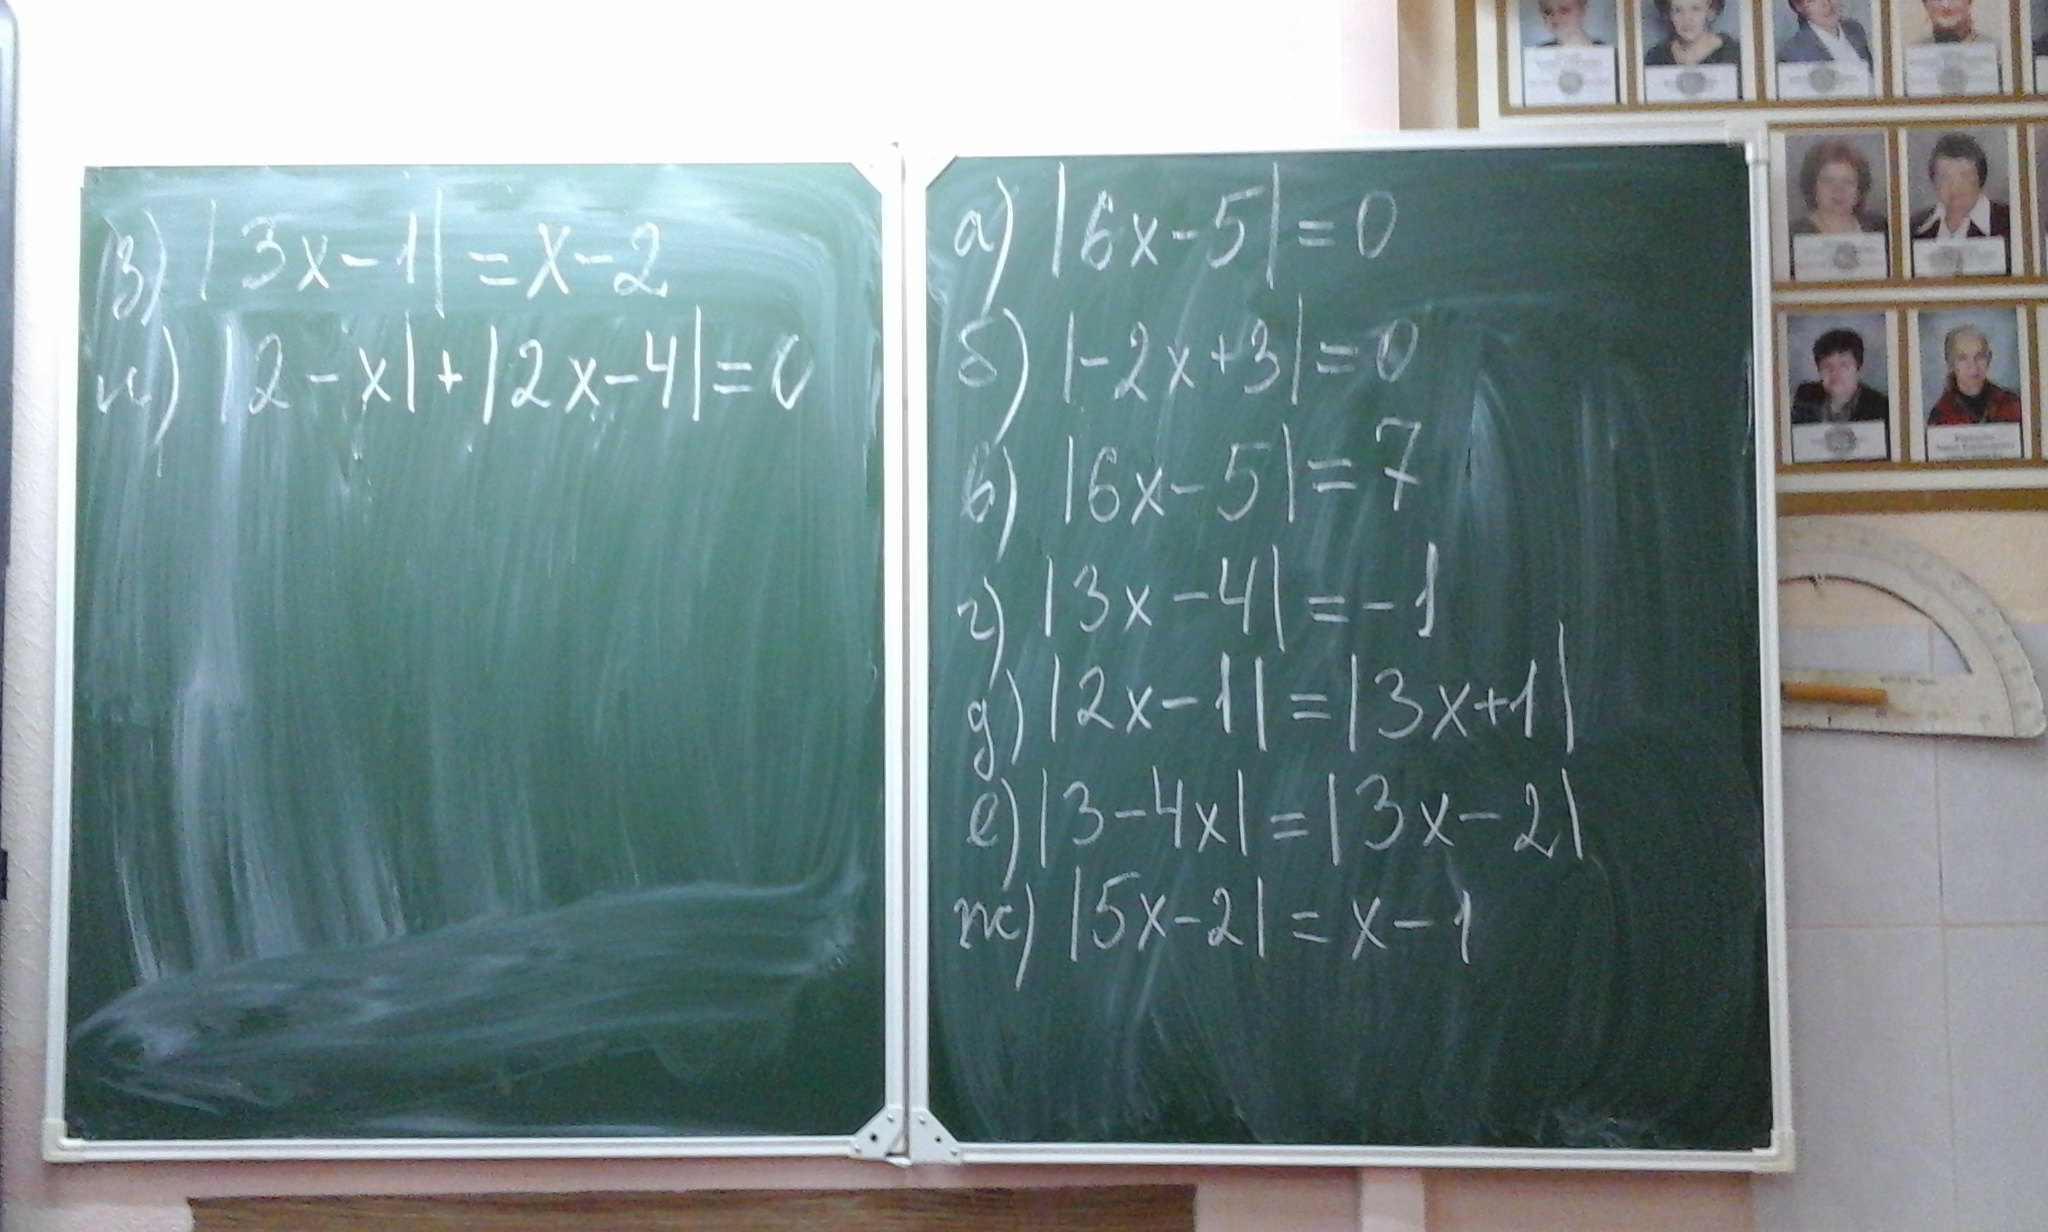 з) |3x-1| = x-2
и) |2-x|+|2x-4|=0
а) |6x-5|=0
б) |-2x+3|=0
в) |6x-5|=7
г) |3x-4|=-1
д) |2x-1|=|3x+1|
е) |3-4x|=|3x-2|
ж) |5x-2|=x-1